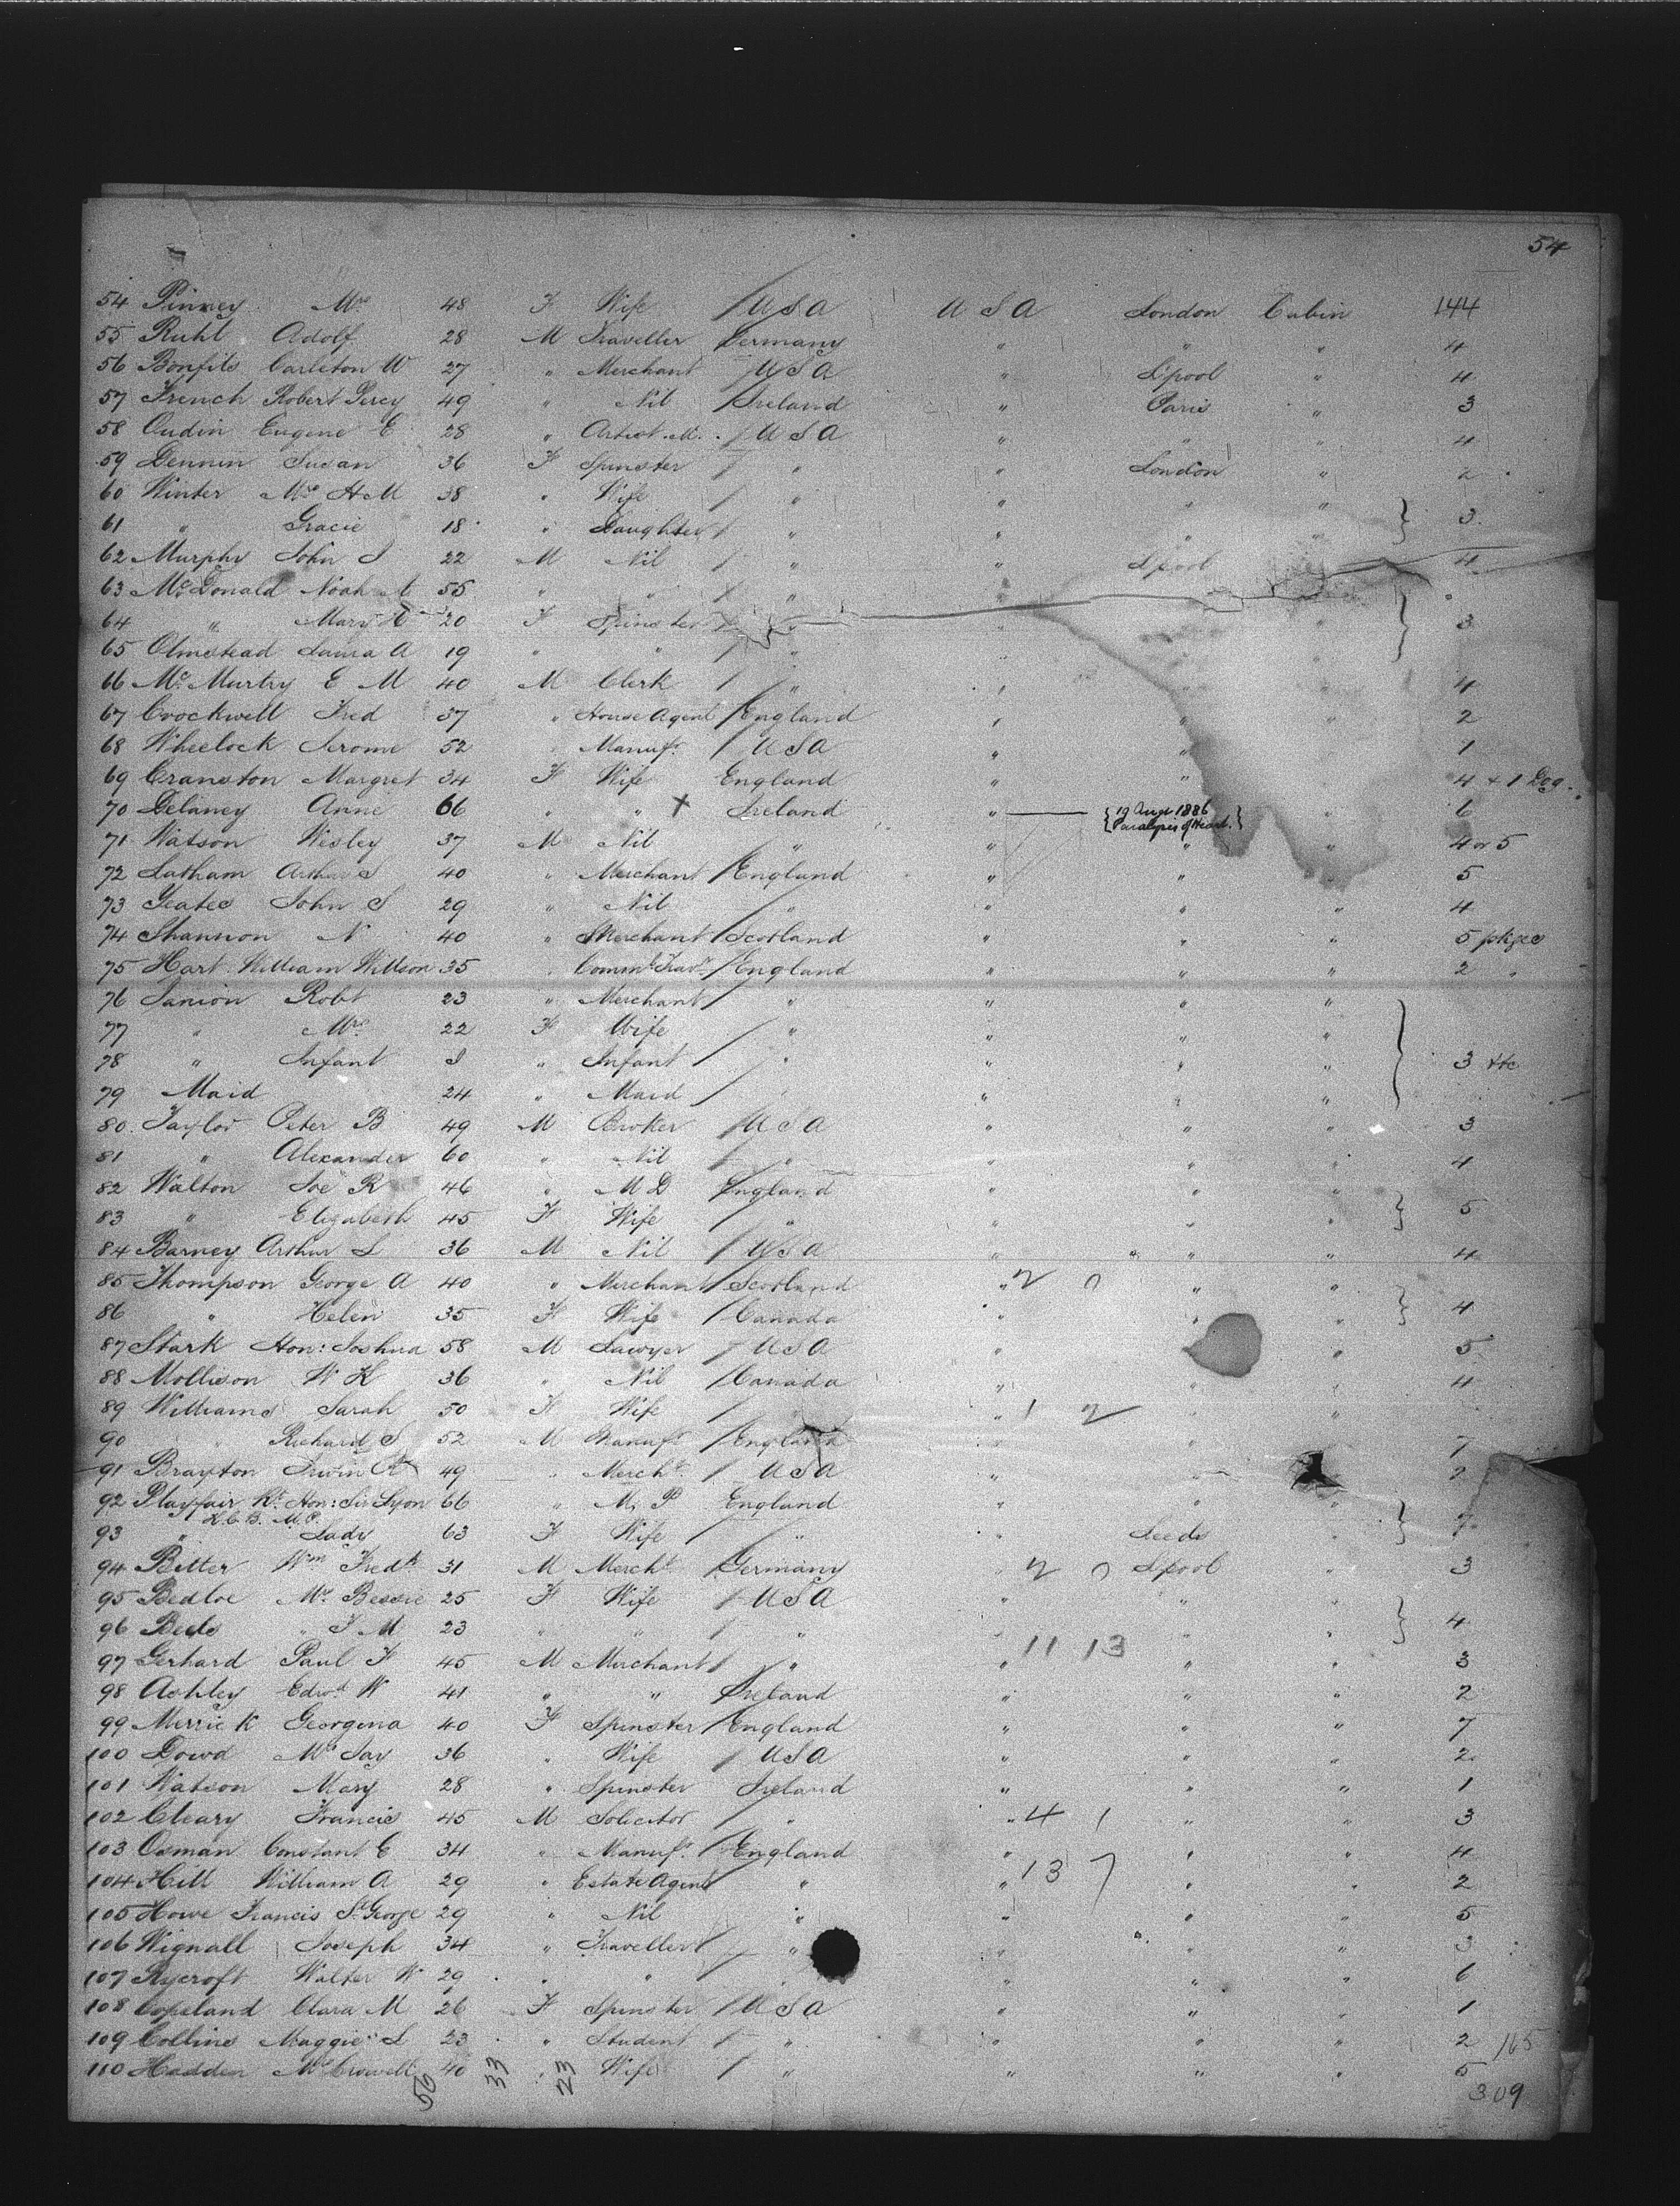 54
54 Pinney Mrs 48 F Wife / USA USA London Cabin 144
55 Ruhl Adolf 28 M Traveller / Germany " " " 4
56 Bonfils Carleton W 27 " Merchant / USA " L'pool " 4
57 French Robert Percy 49 " Nil / Ireland " Paris " 3
58 Oudin Eugene E 28 " Artist / USA " " " 4
59 Dennin Susan 36 F Spinster / " " London " 2
60 Winter Mrs H M 38 " Wife / " " " "
61 " Gracie 18 " Daughter / " " " " } 3
62 Murphy John J 22 M Nil / " " L'pool 4
63 McDonald Noah A 55 " " / " "
64 " Mary 20 F Spinster " " } 3
65 Olmstead Laura A 19 " " / " "
66 McMurtry E M 40 M Clerk / " " " 4
67 Crockwell Fred 37 " House Agent / England " " " 2
68 Wheelock Jerome 52 " Manufr / USA " " 1
69 Cranston Margret 34 F Wife England " " 4 + 1 Dog.
70 Delaney Anne 66 " " X Ireland " { 19 Aug 1886 " 6
Paralysis of Heart. }
71 Watson Wesley 37 M Nil " " " " 4 or 5
72 Latham Arthur S 40 " Merchant / England " " " 5
73 Yeates John S 29 " Nil " " " " 4
74 Shannon N 40 " Merchant / Scotland " " " 5 pkges
75 Hart William Willson 35 " Comml Travr / England " " " 2 "
76 Janion Robt 23 " Merchant / " " " "
77 " Mrs 22 F Wife / " " " "
78 " Infant " Infant / " " " " } 3 etc
79 Maid 24 " Maid / " " " "
80 Taylor Peter B 49 M Broker / USA " " " 3
81 " Alexander 60 " Nil / " " " " 4
82 Walton Joe R 46 " M D England " " "
83 " Elizabeth 45 F Wife / " " " " } 5
84 Barney Arthur L 36 M Nil / USA " " " 4
85 Thompson George A 40 " Merchant / Scotland " 2 0 " "
86 " Helen 35 F Wife / Canada " " " } 4
87 Stark Hon: Joshua 58 M Lawyer / USA " " 5
88 Mollison W K 36 " Nil / Canada " " " 4
89 Williams Sarah 50 F Wife / " " 1 2 " "
90 " Richard S 52 M Manufr / England " " " 7
91 Brayton Irwin 49 " Mercht / USA " "
92 Playfair Rt Hon: Sir Lyon 66 " M. P England " " "
K.C.B. M.P.
93 " Lady 63 F Wife / " " Leeds " } 7
94 Bitter Wm Fredk 31 M Mercht / Germany " 2 0 L'pool " 3
95 Bedloe Mrs Bessie 25 F Wife / USA " " "
96 " F M 23 " " / " " " " } 4
11 13
97 Gerhard Paul F 45 M Merchant / " " " " 3
98 Ashley Edwd W 41 " " / Ireland " " " 2
99 Merrick Georgena 40 F Spinster / England " " " 7
100 Dowd Mrs Jas 36 " Wife / USA " " " 2
101 Watson Mary 28 " Spinster Ireland " " " 1
102 Cleary Francis 45 M Solicitor / " " 4 1 " " 3
103 Osman Constant E 34 " Manufr / England " " " 4
104 Hill William A 29 " Estate Agent / " " 13 7 " " 2
105 Howe Francis St George 29 " Nil " " " " 5
106 Wignall Joseph 34 " Traveller / " " " " 3
107 Rycroft Walter W 29 " " / " " " " 6
108 Copeland Clara M 26 F Spinster / USA " " " 1
109 Collins Maggie L 23 " Student / " " " " 2 165
110 Hadden Mrs 40 " Wife / " " " " 5
56 33 23 309